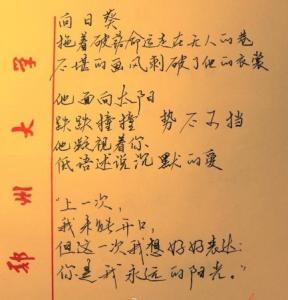 向日葵
拖着破诺命运走在无人的巷
不堪的画风刺破了他的衣裳
他面向太阳
跌跌撞撞 势不可挡
他凝视着你
低语述说沉默的爱
“上一次，
我未能开口，
但这一次我想好好表达：
你是我永远的阳光。”
郑州大学